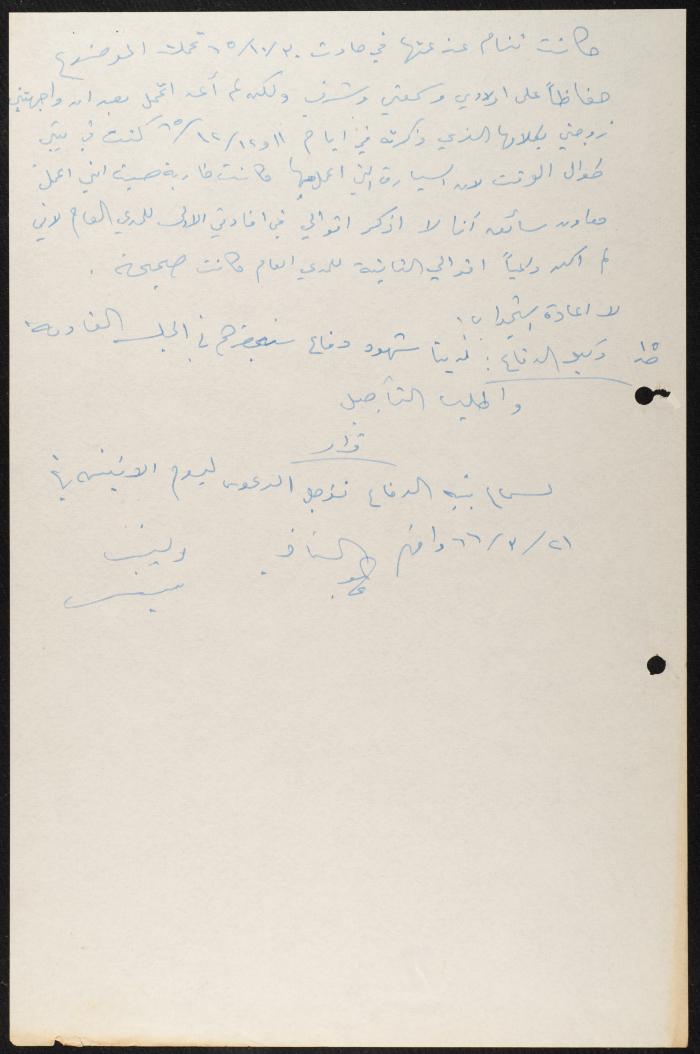 كانت تنام عند عمها في حادث ٣٠/١٠/٦٥ تحملت الموضوع
حفاظاً على اولادي وسمعتي وشرفي ولكن لم أعد اتحمل بعد ان واجهتني
زوجتي بكلامها الذي ذكرته في ايام ١١ و١٢/١٢/٦٥ كنت في بيتي
طوال الوقت لان السيارة التي اعمل بها كانت خاربة حيث اني اعمل
معاون سائق أنا لا اذكر اقوالي في افادتي الاولى للمدعي العام لاني
لم اكن واعياً اقوالي الثانية للمدعي العام كانت صحيحة .
لا اعادة استجواب .
وكيل الدفاع : لدينا شهود دفاع سنحضرهم في الجلسة القادمة
واطلب التأجيل
قرار
لسماع بينة الدفاع نؤجل الدعوى ليوم الاثنين في
٢١/٣/٦٦ وافهم